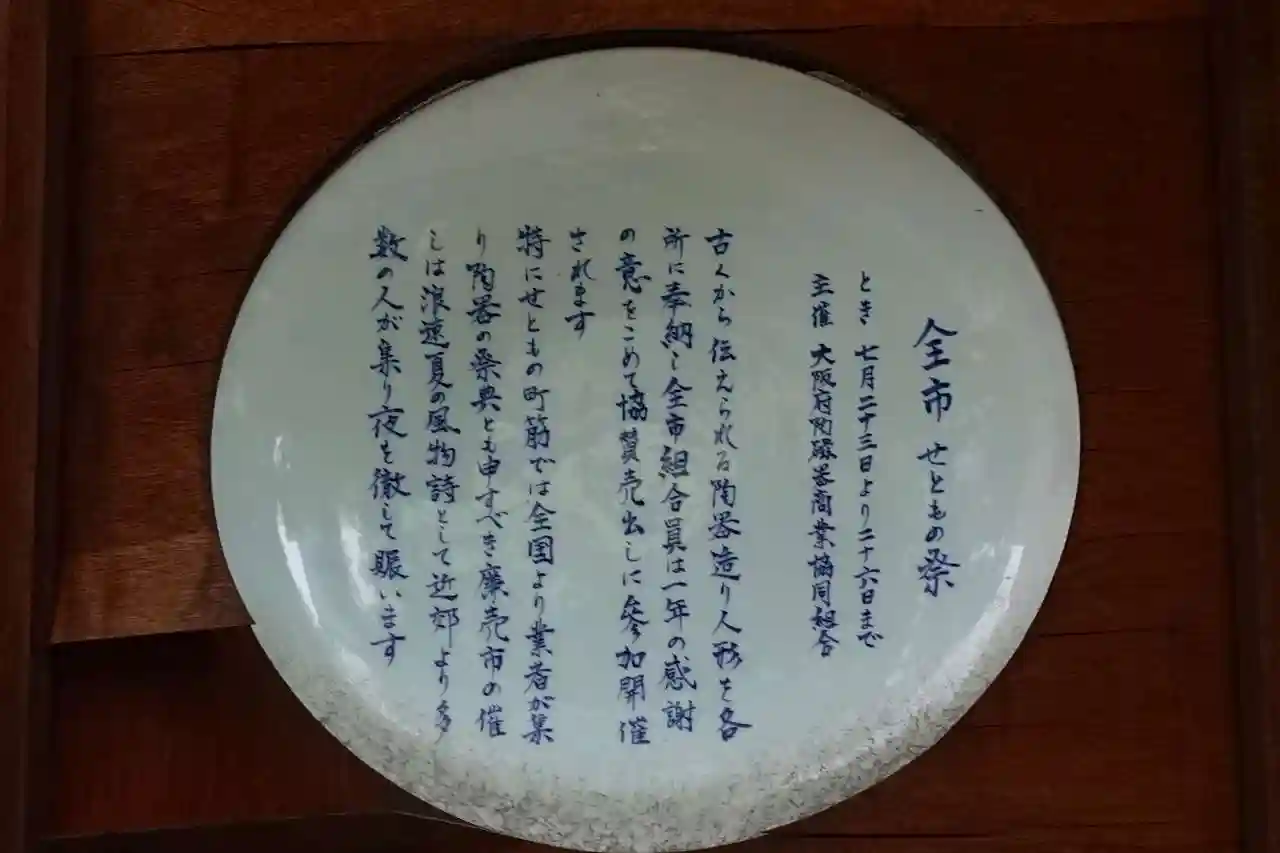 全市 せともの祭
とき 七月二十三日より二十六日まで
主催 大阪府陶磁器商業協同組合
古くから伝えられる陶器造り人形を各
所に奉納し全市組合員は一年の感謝
の意をこめて協賛売出しに参加開催
されます
特にせともの町筋では全国より業者が集
り陶器の祭典とも申すべき廉売市の催
しは浪速夏の風物詩として近郊より多
数の人が集り夜を徹して賑います